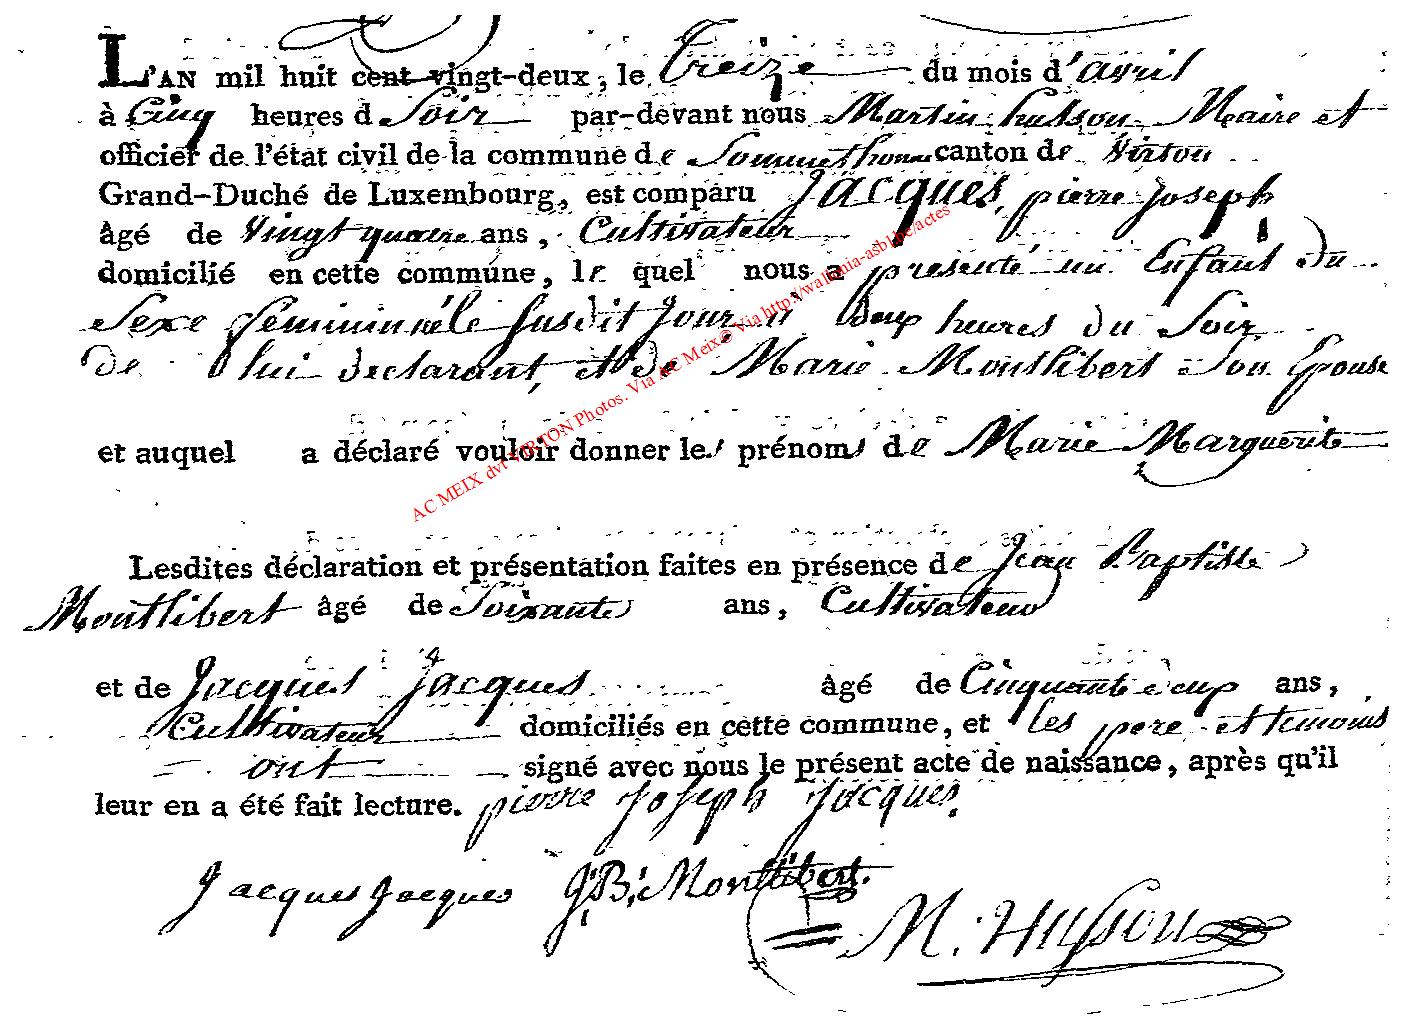 L'AN mil huit cent vingt-deux, le Treize du mois d'avril
à Cinq heures d Soir par-devant nous Martin husson Maire et
officier de l'état civil de la commune de Sommethonne canton de Virton
Grand-Duché de Luxembourg, est comparu Jacques, pierre Joseph
âgé de Vingt quatre ans, Cultivateur
domicilié en cette commune, le quel nous a presenté un Enfant du
Sexe feminin né le susdit Jour à deux heures du Soir
de lui declarant, et de Marie Montlibert Son Epouse
et auquel a déclaré vouloir donner les prénoms de Marie Marguerite
Lesdites déclaration et présentation faites en présence de Jean Baptiste
Montlibert âgé de Soixante ans, Cultivateur
et de Jacques Jacques âgé de Cinquante deux ans,
Cultivateur domiciliés en cette commune, et les pere et temoins
ont signé avec nous le présent acte de naissance, après qu'il
leur en a été fait lecture. pierre Joseph Jacques.
Jacques Jacques J. B. Montlibert.
M. Husson
AC MEIX dvt VIRTON Photos. Via AC Meix© Via http://wallonia-asbl.be/actes